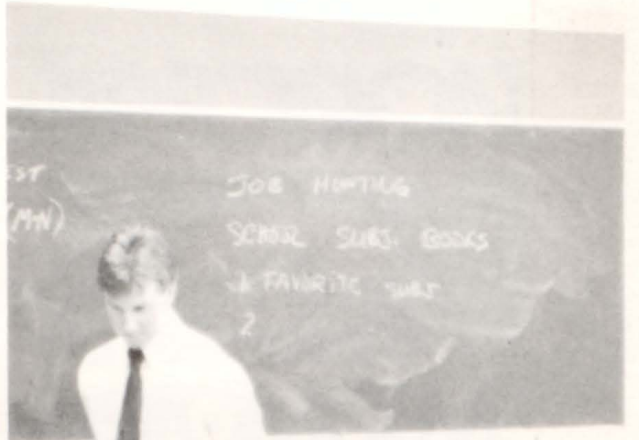 EST
(M-N)
JOB HUNTING
SCHOOL SUBJ. BOOKS
1 FAVORITE SUBJ
2